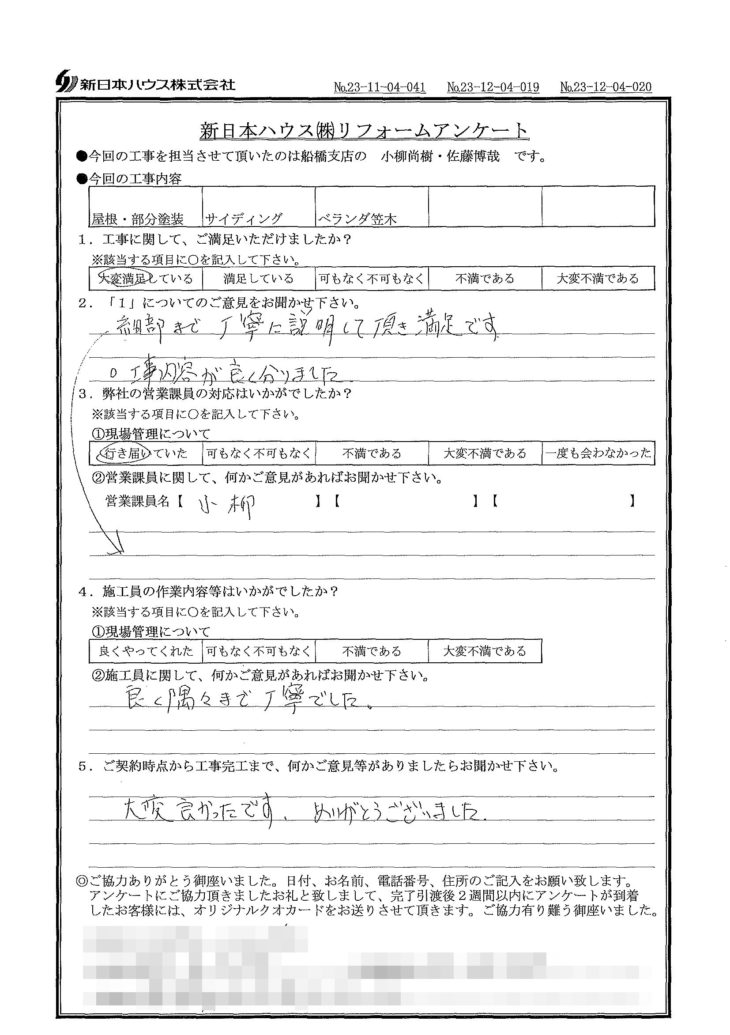 新日本ハウス株式会社
№23-11-04-041 №23-12-04-019 №23-12-04-020
新日本ハウス㈱リフォームアンケート
●今回の工事を担当させて頂いたのは船橋支店の 小柳尚樹・佐藤博哉 です。
●今回の工事内容
屋根・部分塗装 サイディング ベランダ笠木
1．工事に関して、ご満足いただけましたか？
※該当する項目に○を記入して下さい。
大変満足している 満足している 可もなく不可もなく 不満である 大変不満である
2．「1」についてのご意見をお聞かせ下さい。
細部まで丁寧に説明して頂き満足です
○工事内容が良く分りました
3．弊社の営業課員の対応はいかがでしたか？
※該当する項目に○を記入して下さい。
①現場管理について
行き届いていた 可もなく不可もなく 不満である 大変不満である 一度も会わなかった
②営業課員に関して、何かご意見があればお聞かせ下さい。
営業課員名【 小柳 】【 】【 】
4．施工員の作業内容等はいかがでしたか？
※該当する項目に○を記入して下さい。
①現場管理について
良くやってくれた 可もなく不可もなく 不満である 大変不満である
②施工員に関して、何かご意見があればお聞かせ下さい。
良く隅々まで丁寧でした。
5．ご契約時点から工事完工まで、何かご意見等がありましたらお聞かせ下さい。
大変良かったです、ありがとうございました.
◎ご協力ありがとう御座いました。日付、お名前、電話番号、住所のご記入をお願い致します。
アンケートにご協力頂きましたお礼と致しまして、完了引渡後２週間以内にアンケートが到着
したお客様には、オリジナルクオカードをお送りさせて頂きます。ご協力有り難う御座いました。